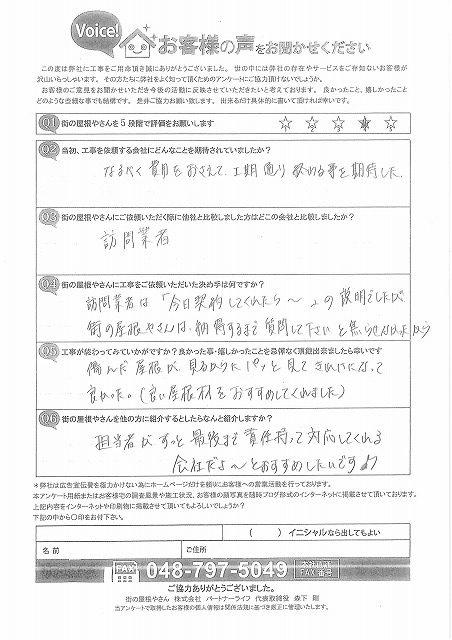 Voice!
お客様の声をお聞かせください
この度は弊社に工事をご用命頂き誠にありがとうございました。世の中には弊社の存在やサービスをご存知ないお客様が
沢山いらっしゃいます。その方たちに弊社をよく知って頂くためのアンケートにご協力頂けないでしょうか。
お客様のご意見をお聞かせいただき今後の活動に反映させていただきたいと考えております。良かったこと、嬉しかったこと
どのような些細な事でも結構です。是非ご協力お願い致します。出来るだけ具体的に書いて頂ければ幸いです。
Q1 街の屋根やさんを5段階で評価をお願いします ☆ ☆ ☆ ☆ ☆
Q2 当初、工事を依頼する会社にどんなことを期待されていましたか?
なるべく費用をおさえて、工期通り終わる事を期待した。
Q3 街の屋根やさんにご依頼いただく際に他社と比較しました方はどこの会社と比較しましたか?
訪問業者
Q4 街の屋根やさんに工事をご依頼いただいた決め手は何ですか?
訪問業者は「今日契約してくれたら〜」の説明でしたが
街の屋根やさんは、納得するまで質問して下さいと焦らせなかった
Q5 工事が終わってみていかがですか?良かった事・嬉しかったことを忌憚なく頂戴出来ましたら幸いです
傷んだ屋根が、見るからにパッと見てきれいになって
良かった。(良い屋根材をおすすめしてくれました)
Q6 街の屋根やさんを他の方に紹介するとしたらなんと紹介しますか?
担当者がずっと最後まで責任持って対応してくれる
会社だよ〜とおすすめしたいです♪
*弊社は広告宣伝費を極力かけない為にホームページだけを頼りにお客様への営業活動を行っております。
本アンケート用紙またはお客様宅の調査風景や施工状況、お客様の顔写真を随時ブログ形式のインターネットに掲載させて頂いております。
上記内容をインターネットや印刷物に掲載させて頂いてもよろしいでしょうか?
下記の中から〇印をお付下さい。
( ) イニシャルなら出してもよい
名前 ご住所
FAX 048-797-5049
ご協力ありがとうございました。
街の屋根やさん 株式会社 パートナーライフ 代表取締役 森下 剛
当アンケートで取得したお客様の個人情報は関係法規に基づき厳正に管理いたします。